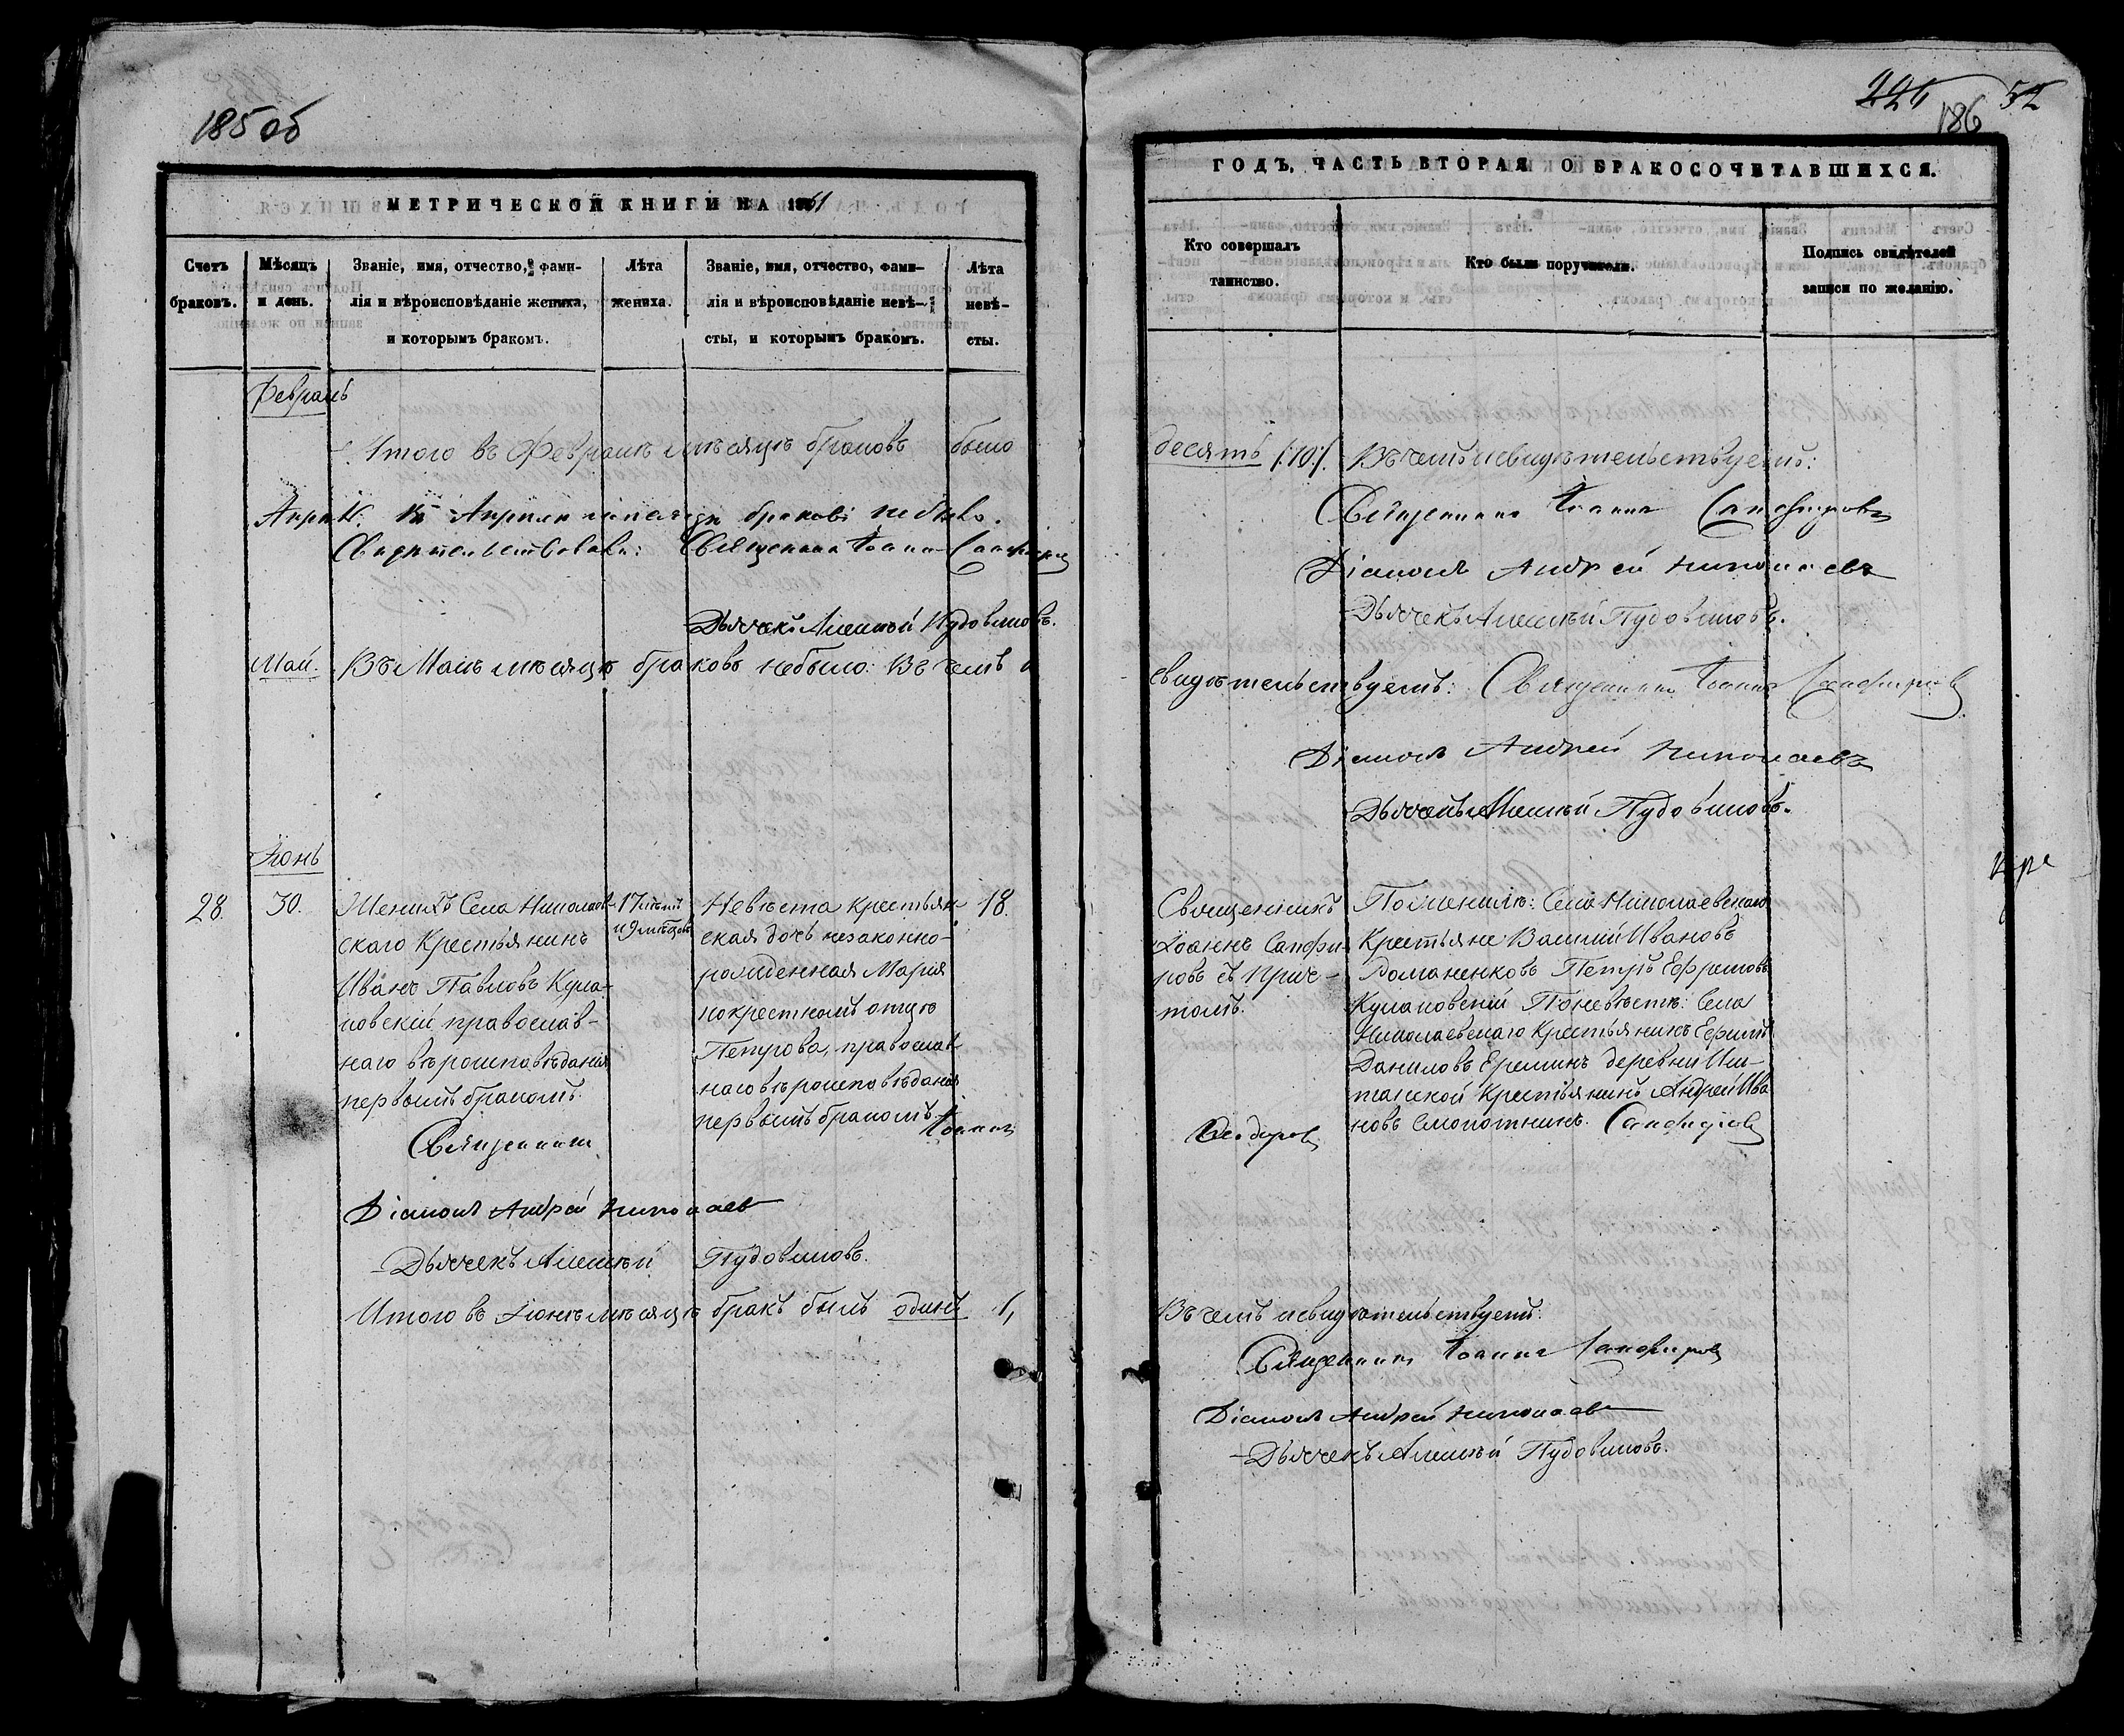 185 об
МЕТРИЧЕСКОЙ КНИГИ НА 1861
Счетъ браковъ.
Мѣсяцъ и день.
Званіе, имя, отчество, фами-
лія и вѣроисповѣданіе жениха,
и которымъ бракомъ.
Лѣта
жениха.
Званіе, имя, отчество, фами-
лія и вѣроисповѣданіе невѣ-
сты, и которымъ бракомъ.
Лѣта
невѣ-
сты.
Февраль
Итого въ Февралѣ мѣсяцѣ браковъ было
Апрѣль. Въ Апрѣлѣ мѣсяцѣ браковъ небыло.
Свидѣтельствовали: Священникъ Іоаннъ Сапфировъ
Дьячекъ Алексѣй Пудовиковъ.
Май. Въ Маѣ мѣсяцѣ браковъ небыло: Въ чемъ и
Іюнь
28.
30.
Женихъ Села Николаев-
скаго Крестьянинъ
Иванъ Павловъ Кула-
ковскій православ-
наго вѣроисповѣданія
первымъ бракомъ.
17 лѣтъ
и 9 мѣсцовъ
Невѣста крестьян-
ская дочь незаконно-
рожденная Марія
покрестномъ отцѣ
Петрова, православ-
наго вѣроисповѣданія
первымъ бракомъ.
18.
Священникъ Іоаннъ
Діаконъ Андрей Николаевъ
Дьячекъ Алексѣй Пудовиковъ.
Итого въ Іюнѣ мѣсяцѣ бракъ былъ одинъ 1,
226
186
52
ГОДЪ, ЧАСТЬ ВТОРАЯ О БРАКОСОЧЕТАВШИХСЯ.
Кто совершалъ
таинство.
Кто были поручители.
Подпись свидѣтелей
записи по желанію.
десять /:10:/. Въ чемъ исвидѣтельствуемъ:
Священникъ Іоаннъ Сапфировъ
Діаконъ Андрей Николаевъ
Дьячекъ Алексѣй Пудовиковъ.
свидѣтельствуемъ: Священникъ Іоаннъ Сапфировъ
Діаконъ Андрей Николаевъ
Дьячекъ Алексѣй Пудовиковъ.
Священникъ
Іоаннъ Сапфи-
ровъ съ Прич-
томъ.
Поженихѣ: Села Николаевскаго
Крестьяне Василій Ивановъ
Романенковъ Петръ Ефремовъ
Кулаковскій Поневѣстѣ: Села
Николаевскаго Крестьянинъ Ефимъ
Даниловъ Ереминъ деревни Иш-
танской Крестьянинъ Андрей Ива
новъ Смокотнинъ.
Феодоровъ Сапфировъ
Въ чемъ исвидѣтельствуемъ:
Священникъ Іоаннъ Сапфировъ
Діаконъ Андрей Николаевъ
Дьячекъ Алексѣй Пудовиковъ.